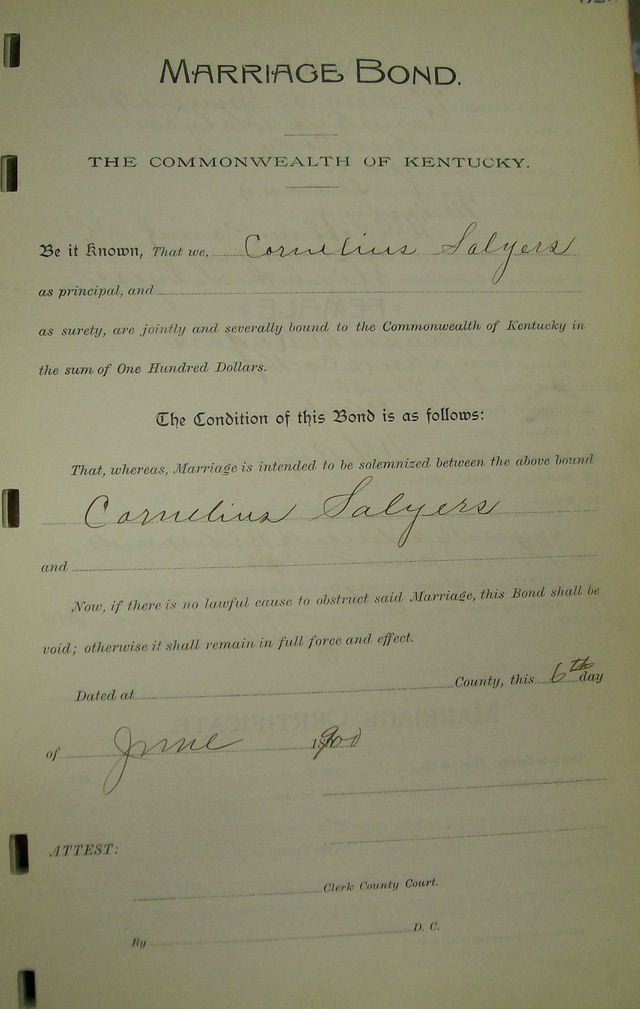 MARRIAGE BOND.
THE COMMONWEALTH OF KENTUCKY.
Be it Known, That we, Cornelius Salyers
as principal, and
as surety, are jointly and severally bound to the Commonwealth of Kentucky in
the sum of One Hundred Dollars.
The Condition of this Bond is as follows:
That, whereas, Marriage is intended to be solemnized between the above bound
Cornelius Salyers
and
Now, if there is no lawful cause to obstruct said Marriage, this Bond shall be
void; otherwise it shall remain in full force and effect.
Dated at County, this 6th day
of June 1900
ATTEST:
Clerk County Court.
By D. C.